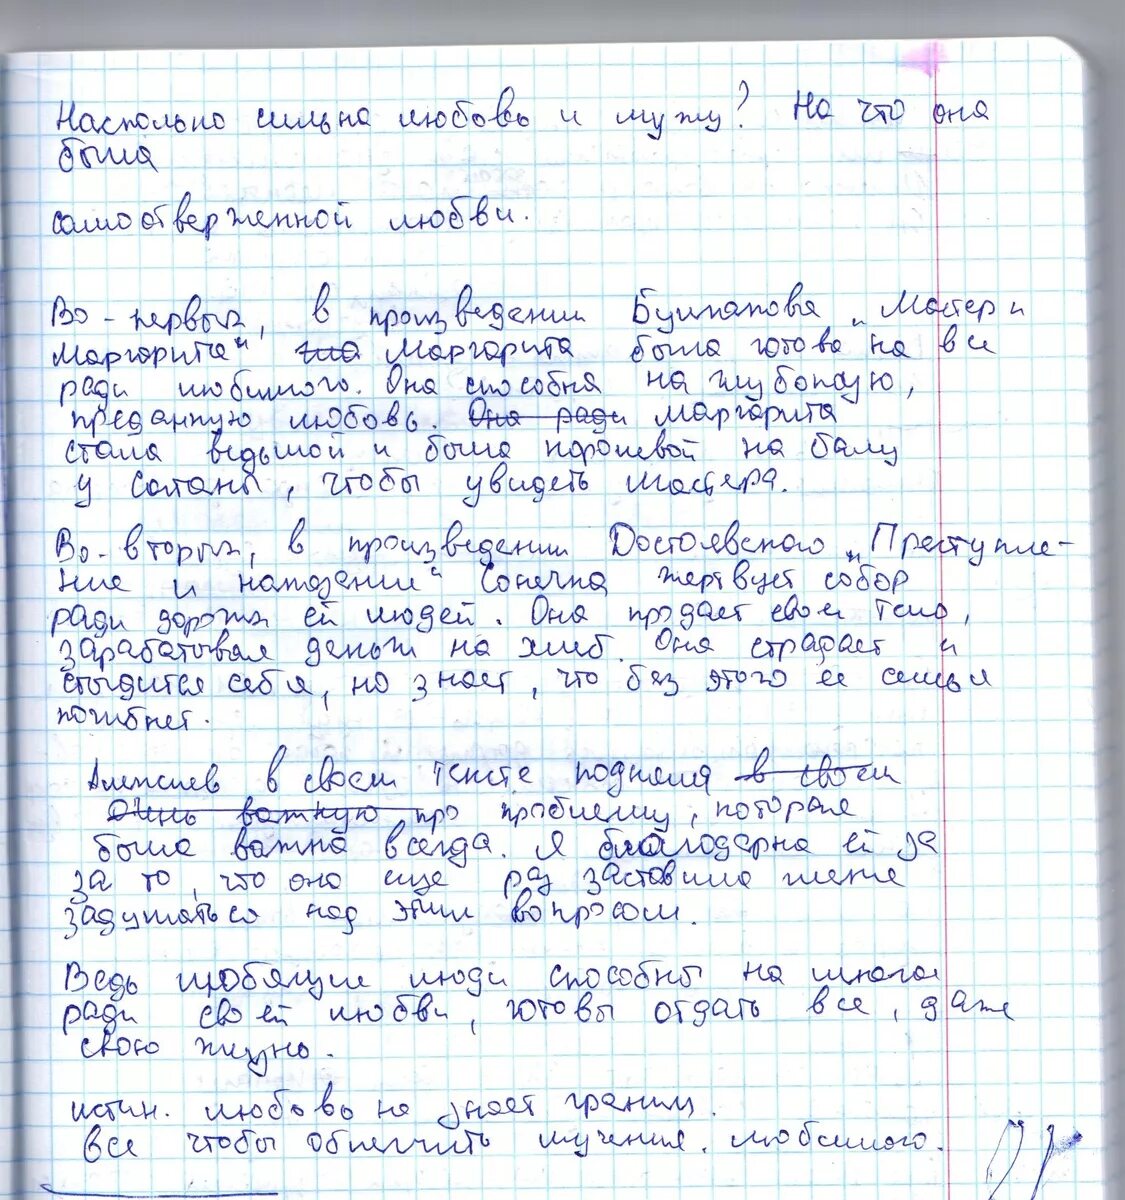 Настолько сильна любовь к мужу? На что она
была
самоотверженной любви.
Во-первых, в произведении Булгакова „Мастер и
Маргарита" Маргарита была готова на все
ради любимого. Она способна на глубокую,
преданную любовь. Она ради Маргарита
стала ведьмой и была королевой на балу
у Сатаны, чтобы увидеть Мастера.
Во-вторых, в произведении Достоевского „Преступле-
ние и наказение" Сонечка жертвует собой
ради дорогих ей людей. Она продает свое тело,
зарабатывая деньги на хлеб. Она страдает и
стыдится себя, но знает, что без этого ее семья
погибнет.
Алексиев в своем тексте подняла в своем
очень важную про проблему, которая
была важна всегда. Я благодарна ей за
за то, что она еще раз заставила меня
задуматься над этим вопросом.
Ведь любящие люди способны на многое
ради своей любви, готовы отдать все, даже
свою жизнь.
истин. любовь не знает границ.
все чтобы облегчить мучения. любимого.